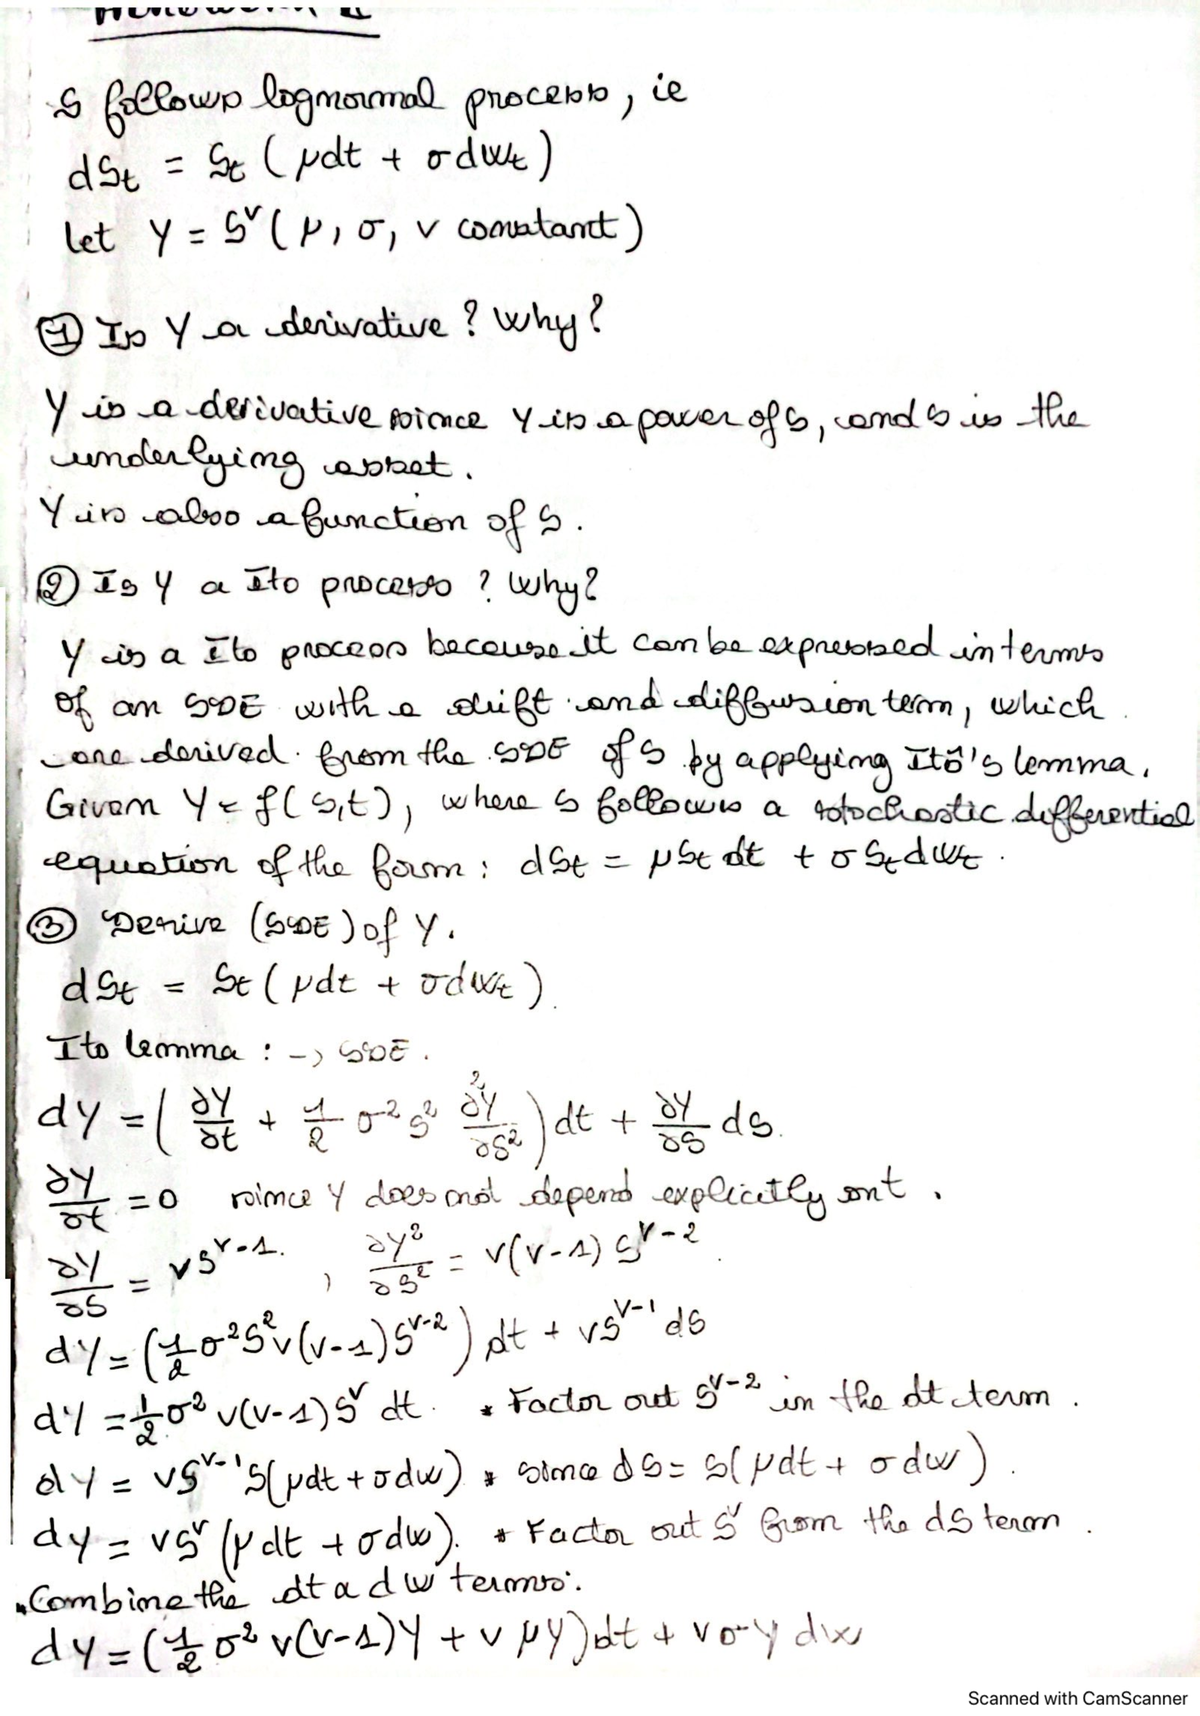 S follows lognormal process, ie
dSt = St ( μdt + σdWt )
Let Y = S^v ( μ, σ, v constant )
① Is Y a derivative ? Why ?
Y is a derivative since Y is a power of S, and S is the
underlying asset.
Y is also a function of S.
② Is Y a Ito process ? Why ?
Y is a Ito process because it can be expressed in terms
of an SDE with a drift and diffusion term, which
are derived from the SDE of S by applying Itô's lemma.
Given Y = f(S,t), where S follows a stochastic differential
equation of the form : dSt = μSt dt + σStdWt.
③ Derive (SDE) of Y.
dSt = St ( μdt + σdWt ).
Ito lemma : -> SDE.
dY = ( ∂Y/∂t + 1/2 σ² S² ∂²Y/∂S² ) dt + ∂Y/∂S dS.
∂Y/∂t = 0 since Y does not depend explicitly on t.
∂Y/∂S = vS^v-1. , ∂Y²/∂S² = v(v-1) S^v-2
dY = ( 1/2 σ²S²v(v-1)S^v-2 ) dt + vS^v-1 dS
dY = 1/2 σ² v(v-1)S^v dt. * Factor out S^v-2 in the dt term.
dY = vS^v-1 S(μdt + σdw) * Since dS = S( μdt + σdw).
dy = vS^v (μdt + σdw). * Factor out S^v from the dS term.
Combine the dt a dw terms:
dY = ( 1/2 σ² v(v-1)Y + v μY ) dt + vσY dw
Scanned with CamScanner